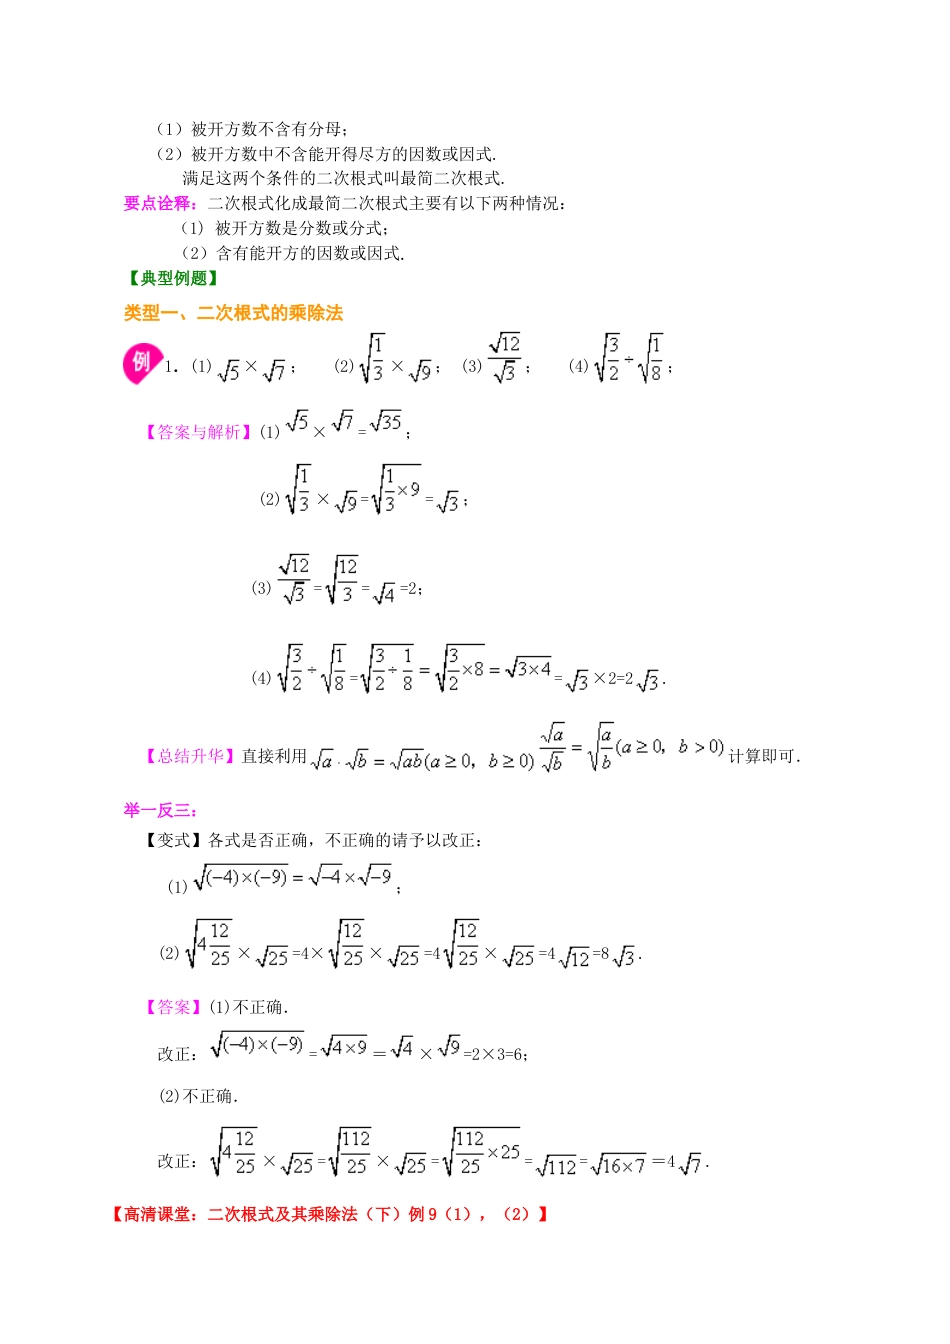 (1)被开方数不含有分母;
(2)被开方数中不含能开得尽方的因数或因式.
满足这两个条件的二次根式叫最简二次根式.
要点诠释:二次根式化成最简二次根式主要有以下两种情况:
(1) 被开方数是分数或分式;
(2)含有能开方的因数或因式.
【典型例题】
类型一、二次根式的乘除法
例 1.(1) √5×√7; (2) √(1/3)×√9; (3) √12/√3; (4) √(3/2)÷√(1/8);
【答案与解析】(1) √5×√7=√35;
(2) √(1/3)×√9=√(1/3×9)=√3;
(3) √12/√3=√(12/3)=√4=2;
(4) √(3/2)÷√(1/8)=√(3/2÷1/8)=√(3/2×8)=√(3×4)=√3×2=2√3.
【总结升华】直接利用√a·√b=√ab(a≥0，b≥0) √a/√b=√(a/b)(a≥0，b>0)计算即可.
举一反三:
【变式】各式是否正确,不正确的请予以改正:
(1) √((−4)×(−9))=√−4×√−9;
(2) √(4 12/25)×√25=4×√(12/25)×√25=4√(12/25)×√25=4√12=8√3.
【答案】(1)不正确.
改正: √((−4)×(−9))=√(4×9)=√4×√9=2×3=6;
(2)不正确.
改正: √(4 12/25)×√25=√(112/25)×√25=√(112/25×25)=√112=√(16×7)=4√7.
【高清课堂:二次根式及其乘除法(下)例 9(1),(2)】